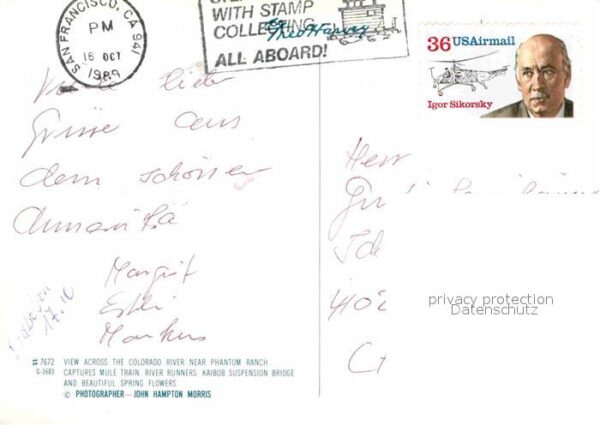 SAN FRANCISCO, CA 941
PM
16 OCT
1989
WITH STAMP
COLLECTING
ALL ABOARD!
36 USAirmail
Igor Sikorsky
liebe
Grüsse aus
dem schönen
Margrit
Esthi
Markus
17.10
Herr
privacy protection
Datenschutz
#7672 VIEW ACROSS THE COLORADO RIVER NEAR PHANTOM RANCH
G-1683 CAPTURES MULE TRAIN, RIVER RUNNERS, KAIBOB SUSPENSION BRIDGE
AND BEAUTIFUL SPRING FLOWERS
© PHOTOGRAPHER—JOHN HAMPTON MORRIS